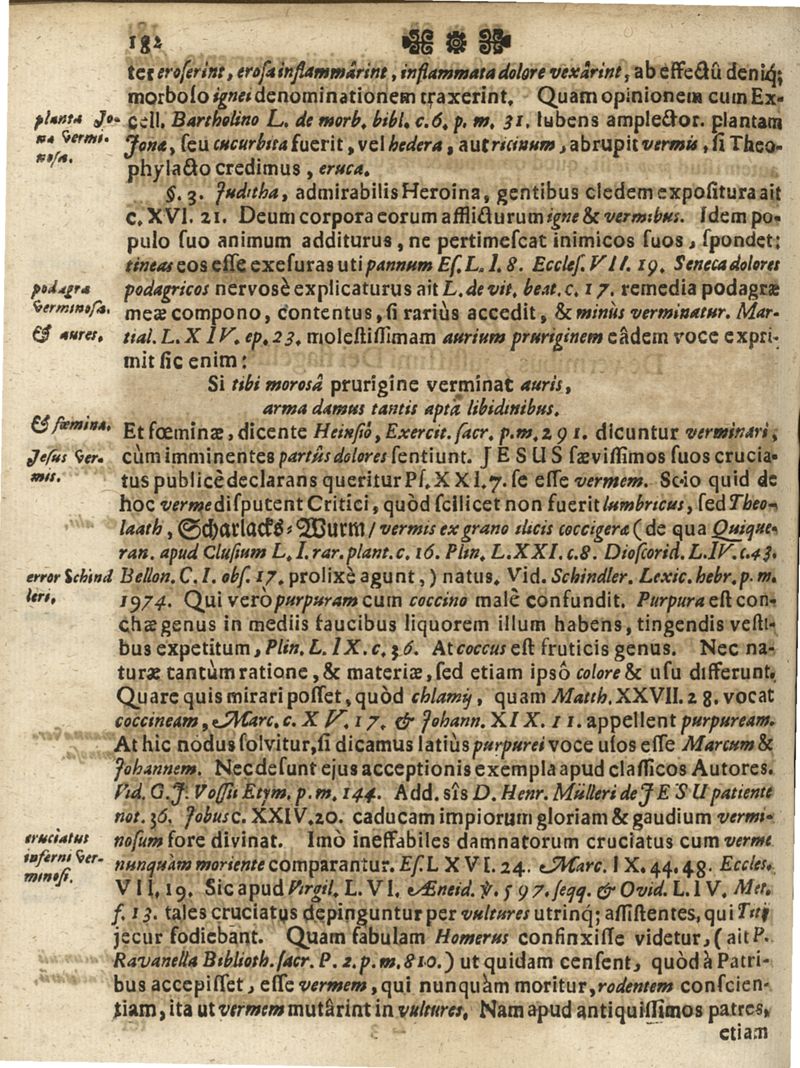 182
ter eroserint, erosa inflammârint, inflammata dolore vexârint, ab effectû deniq;
morboso ignei denominationem traxerint. Quam opinionem cum Ex-
planta Jo-
na Vermi-
nosa.
cell. Bartholino L. de morb. bibl. c. 6. p. m. 31. lubens amplector. plantam
Jonæ, seu cucurbita fuerit, vel hedera, aut ricinum, abrupit vermis, si Theo-
phylacto credimus, eruca.
§. 3. Juditha, admirabilis Heroina, gentibus cledem expositura ait
c. XVI. 21. Deum corpora eorum afflicturum igne & vermibus. Idem po-
pulo suo animum additurus, ne pertimescat inimicos suos, spondet:
tineas eos esse exesuras uti pannum Es. L. I. 8. Eccles. VII. 19. Seneca dolores
podagra
verminosa.
& aures.
podagricos nervosè explicaturus ait L. de vit. beat. c. 17. remedia podagræ
meæ compono, contentus, si rariùs accedit, & minùs verminatur. Mar-
tial. L. XIV. ep. 23. molestissimam aurium pruriginem eâdem voce expri-
mit sic enim:
Si tibi morosâ prurigine verminat auris,
arma damus tantis apta libidinibus.
& fœmina.
Et fœminæ, dicente Heinsiô, Exercit. sacr. p. m. 291. dicuntur verminari,
Jesus Ver-
mis.
cùm imminentes partûs dolores sentiunt. JESUS sævissimos suos crucia-
tus publicè declarans queritur Ps. XXI. 7. se esse vermem. Scio quid de
hoc verme disputent Critici, quòd scilicet non fuerit lumbricus, sed Theo-
laath, Scharlacks-Wurm/ vermis ex grano ilicis coccigera (de qua Quique-
ran. apud Clusium L. I. rar. plant. c. 16. Plin. L. XXI. c. 8. Dioscorid. L. IV. c. 43.
error Schind
leri.
Bellon. C. I. obs. 17. prolixè agunt,) natus. Vid. Schindler. Lexic. hebr. p. m.
1974. Qui verò purpuram cum coccino malè confundit. Purpura est con-
chæ genus in mediis faucibus liquorem illum habens, tingendis vesti-
bus expetitum, Plin. L. IX. c. 36. At coccus est fruticis genus. Nec na-
turæ tantùm ratione, & materiæ, sed etiam ipsô colore & usu differunt.
Quare quis mirari posset, quòd chlamys, quam Matth. XXVII. 28. vocat
coccineam, Marc. c. XV. 17. & Johann. XIX. 11. appellent purpuream.
At hic nodus solvitur, si dicamus latiùs purpurei voce usos esse Marcum &
Johannem. Nec desunt ejus acceptionis exempla apud classicos Autores.
Vid. G. J. Vossii Etym. p. m. 144. Add. sîs D. Henr. Mülleri de JESU patiente
not. 36. Jobus c. XXIV. 20. caducam impiorum gloriam & gaudium vermi-
cruciatus
inferni Ver-
minosi.
nosum fore divinat. Imò ineffabiles damnatorum cruciatus cum verme
nunquàm moriente comparantur. Es. LXVI. 24. Marc. IX. 44. 48. Eccles.
VII. 19. Sic apud Virgil. L. VI. Æneid. v. 597. seqq. & Ovid. L. IV. Met.
f. 13. tales cruciatus depinguntur per vultures utrinq; assistentes, qui Titij
jecur fodiebant. Quam fabulam Homerus confinxisse videtur, (ait P.
Ravanella Biblioth. sacr. P. 2. p. m. 810.) ut quidam censent, quòd à Patri-
bus accepisset, esse vermem, qui nunquàm moritur, rodentem conscien-
tiam, ita ut vermem mutârint in vultures. Nam apud antiquissimos patres,
etiam